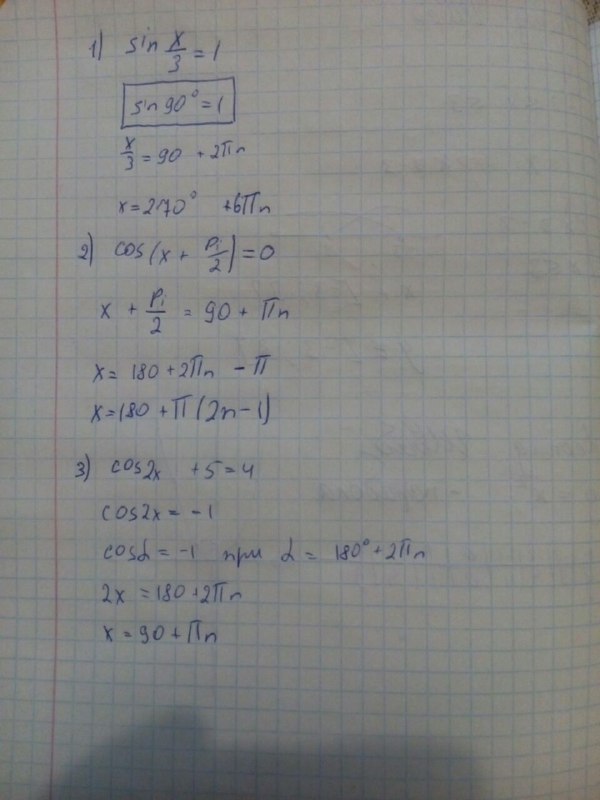 1) sin x/3 = 1
sin 90° = 1
x/3 = 90 + 2πn
x = 270° + 6πn
2) cos(x + Pi/2) = 0
x + Pi/2 = 90 + πn
x = 180 + 2πn - π
x = 180 + π(2n - 1)
3) cos2x + 5 = 4
cos2x = -1
cosα = -1 при α = 180° + 2πn
2x = 180 + 2πn
x = 90 + πn